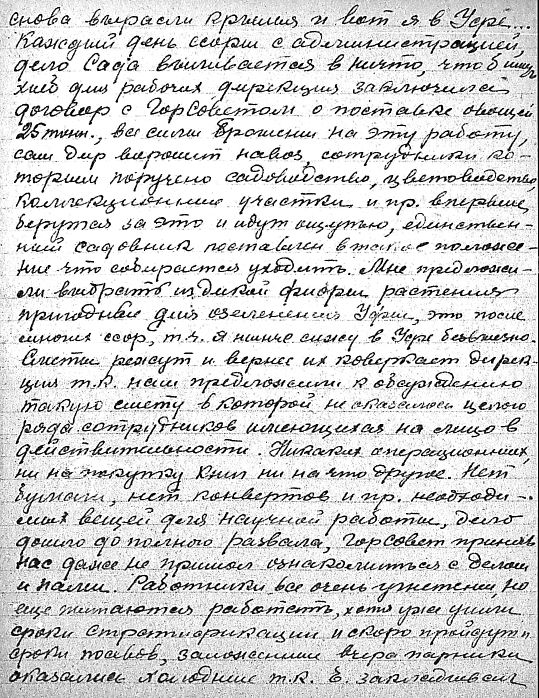 снова выросли крылья и вот я в Уфе...
Каждый день ссоры с администрацией,
дело Сада выливается в ничто, чтоб
хлеб для рабочих дирекция заключила
договор с Горсоветом о поставке овощей
25 тонн., все силы брошены на эту работу,
сам дир ворошит навоз, сотрудники ко-
торым поручено садоводство, цветоводство,
коллекционные участки и пр. впервые
берутся за это и идут ощупью, единствен-
ный садовник поставлен в такое положе-
ние что собирается уходить. Мне предложи-
ли выбрать из дикой флоры растения
пригодные для озеленения Уфы, это после
многих ссор, т.ч. я нынче сижу в Уфе безвыезно.
Сметы режут и вернее их коверкает дирек-
ция т.к. нам предложили к обсуждению
такую смету в которой не оказалось целого
ряда сотрудников имеющихся на лицо в
действительности. Никаких операционных,
ни на покупку книг ни на что другое. Нет
бумаги, нет конвертов и пр. необходи-
мых вещей для научной работы, дело
дошло до полного развала, Горсовет принять
нас даже не пришол ознакомиться с делом
и нами. Работники все очень угнетены, но
еще пытаются работать, хотя уже ушли
сроки стратификации и скоро пройдут и
сроки посевов, заложенные вчера парники
оказались холодные т.к. Е. закладывал